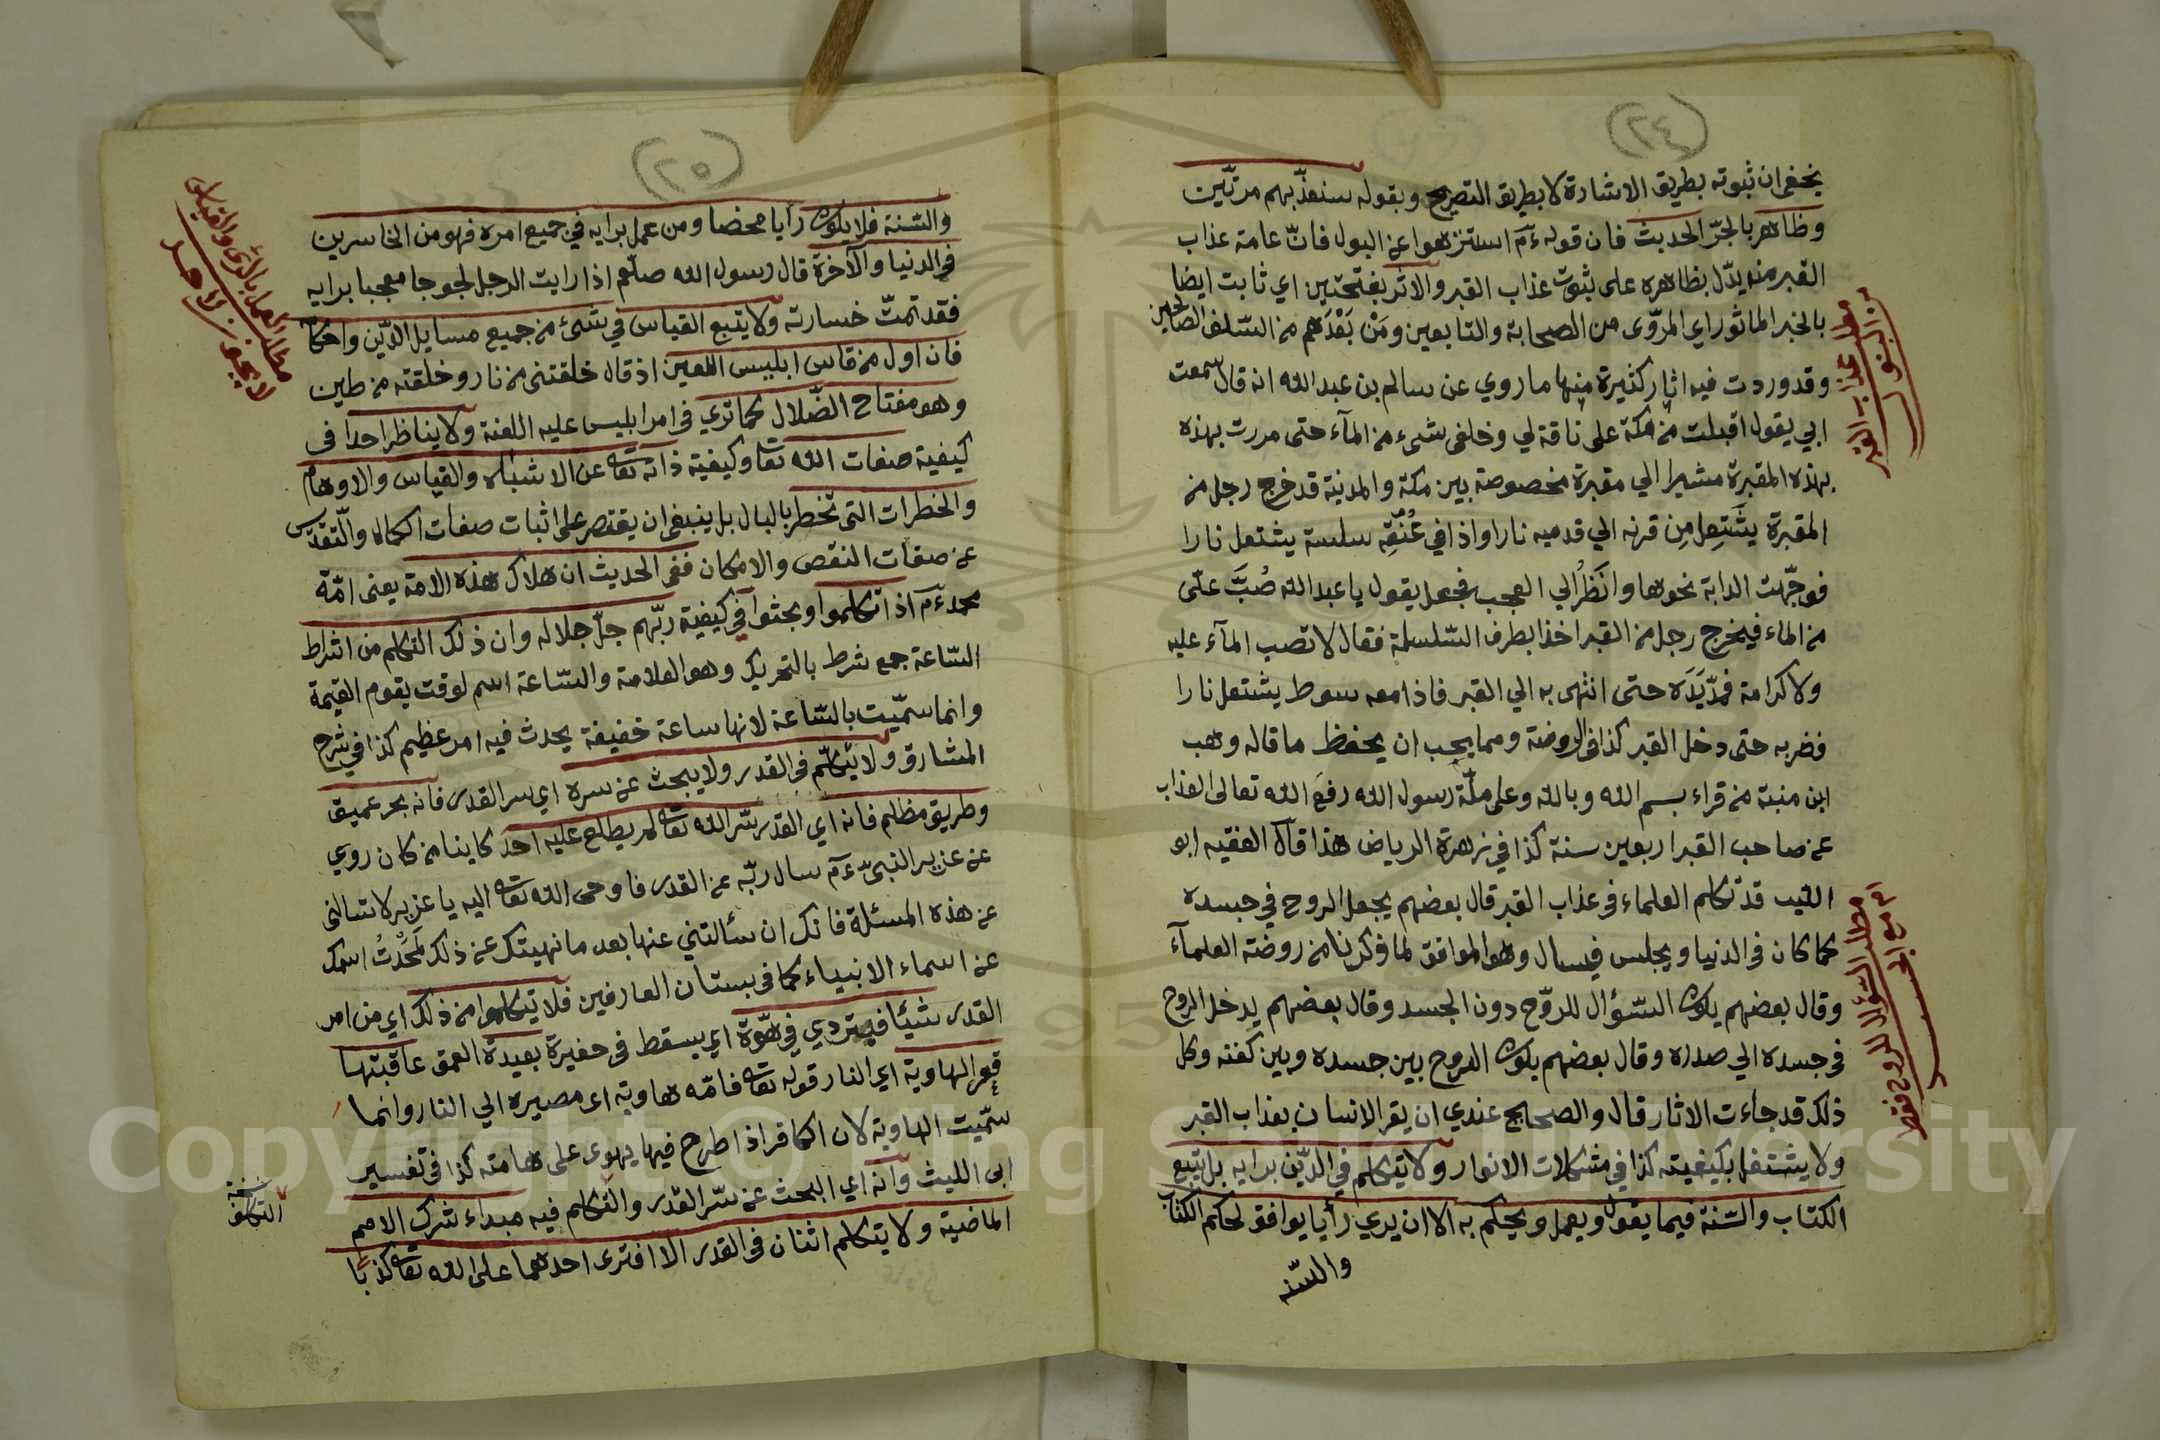 (٢٤)
يخفى ان ثبوته بطريق الاشارة لا بطريق التصريح وبقوله سنعذبهم مرتين
وظاهر بالجرّ الحديث فان قوله ءم استنزهوا عن البول فانّ عامة عذاب
القبر منه يدّل بظاهره على ثبوت عذاب القبر والاثر بفتحتين اي ثابت ايضا
بالخبر الماثور اي المروّى من الصحابة والتابعين ومَنْ بَعْدَهم من السّلف الصالحين
وقد وردت فيه اثار كثيرة منها ما روي عن سالم بن عبد الله انه قال سمعت
ابي يقول اقبلت من مكة على ناقة لي وخلفى شىء من المآء حتى مررت بهذه
بهذه المقبرة مشيرا الي مقبرة مخصوصة بين مكة والمدنية قد خرج رجل من
المقبرة يشتعل مِن قرنه الي قدميه نارا واذا في عُنُقِه سلسة يشتعل نارا
فوجّهت الدابة نحوها وانَظُر الي العجب فجعل يقول يا عبد الله صُبَّ علّى
من الماء فيخرج رجل من القبر اخذا بطرف السّلسلة فقال لا تصب المآء عليه
ولا كرامة فمدّ يَدَه حتى انتهى به الي القبر فاذا معه سوط يشتعل نارا
فضربه حتى دخل القبر كذا فى الروضة ومما يجب ان يحفظ ما قاله وهب
ابن منبة من قراء بسم الله وبالله وعلى ملّة رسول الله رفعَ الله تعالى العذاب
عن صاحب القبر اربعين سنة كذا في زهرة الرياض هذا قال الفقيه ابو
الليب قد تكلم العلماء فى عذاب القبر قال بعضهم يجعل الروح في جسده
كما كان فى الدنيا ويجلس فيسال وهو الموافق لما ذكرنا من روضة العلمآء
وقال بعضهم يكون السّؤال للروّح دون الجسد وقال بعضهم يدخل الروح
فى جسده الي صدره وقال بعضهم يكون الروح بين جسده وبين كفنه وكل
ذلك قد جاءت الاثار قال والصحايح عندي ان يقر الانسان بعذاب القبر
ولا يشتغل بكيفيته كذا في مشكلات الانوار ولا يتكلم في الدّين برايه بل يتبع
الكتاب والسّنة فيما يقول ويعمل ويحكم به الا ان يري رأيا يوافق لحكم الكتاب
والسّنه
مطلب عذاب القبر
من البول
مطلب السّؤال للروح فقط
ام مع الجسد
(٢٥)
والسّنة فلا يكون رأيا محضا ومن عمل برايه في جميع امره فهو من الخاسرين
فى الدنيا والآخرة قال رسول الله صلعم اذا رايت الرجل لجوجا معجبا برايه
فقد تمتّ خسارته ولا يتبع القياس في شىء من جميع مسايل الدّين واحكام
فان اول من قاس ابليس اللعين اذ قال خلقتنى من نار وخلقته من طين
وهو مفتاح الضّلال كما تري في امر ابليس عليه اللعنة ولا يناظر احدا فى
كيفية صفات الله تعا وكيفية ذاته تعا عن الاشباه والقياس والاوهام
والخطرات التى تخطر بالبال بل ينبغى ان يقتصر على اثبات صفات الكمال والتّقدّس
عن صفات النقص والامكان ففى الحديث ان هلاك هذه الامة يعنى امّة
محمد ءم اذا تكلموا وبحثوا في كيفية ربّهم جلّ جلاله وان ذلك التكلم من اشراط
السّاعة جمع شرط بالتحريك وهو العلامة والسّاعة اسم لوقت يقوم القيمة
وانما سمّيت بالسّاعة لانها ساعة خفيفة يحدث فيه امر عظيم كذا في شرح
المشارق ولا يتكلّم فى القدر ولا يبحث عن سره اي سر القدر فانه بحر عميق
وطريق مظلم فانه اي القدر سّر الله تعا لم يطلع عليه احد كاينا من كان روي
عن عزير النبىّ ءم سال ربّه عن القدر فاوحى الله تعا اليه يا عزير لا تسالنى
عن هذه المسئلة فانك ان سألتني عنها بعد ما نهيتك عن ذلك لمحوْتُ اسمك
عن اسماء الانبياء كما فى بستان العارفين فلا يتكلموا من ذلك اي من امر
القدر شيئا فيتردي في هوّة اي يسقط فى حفيرة بعيدة العمق عاقبتها
قعر الهاوية اي النار قوله تعا فامّه هاوية اى مصيره الي النار وانما
سمّيت الهاوية لان الكافر اذا طرح فيها يهوى على هامته كذا فى تفسير
ابى الليث وانه اي البحث عن سّر القدر والتكلم فيه مبداء شرك الامم
الماضية ولا يتكلم اثنان فى القدر الا افترى احدهما على الله تعا كذبًا
مطلب العمل بالرّأى والقياس
لا يجوز لاحد
نسخة
التكلف